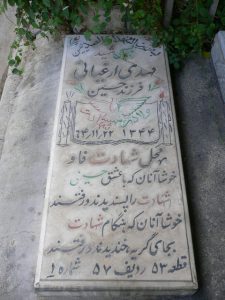 شهید
مهدی ارغیانی
فرزند حسین
ولادت شهادت
۱۳۴۴ ۶۴/۱۱/۲۲
محل شهادت فاو
خوشا آنان که با عشق حسینی
شهادت را پسندیدند و رفتند
خوشا آنان که هنگام شهادت
بجای گریه خندیدند و رفتند
قطعه ۵۳ ردیف ۵۷ شماره ۱